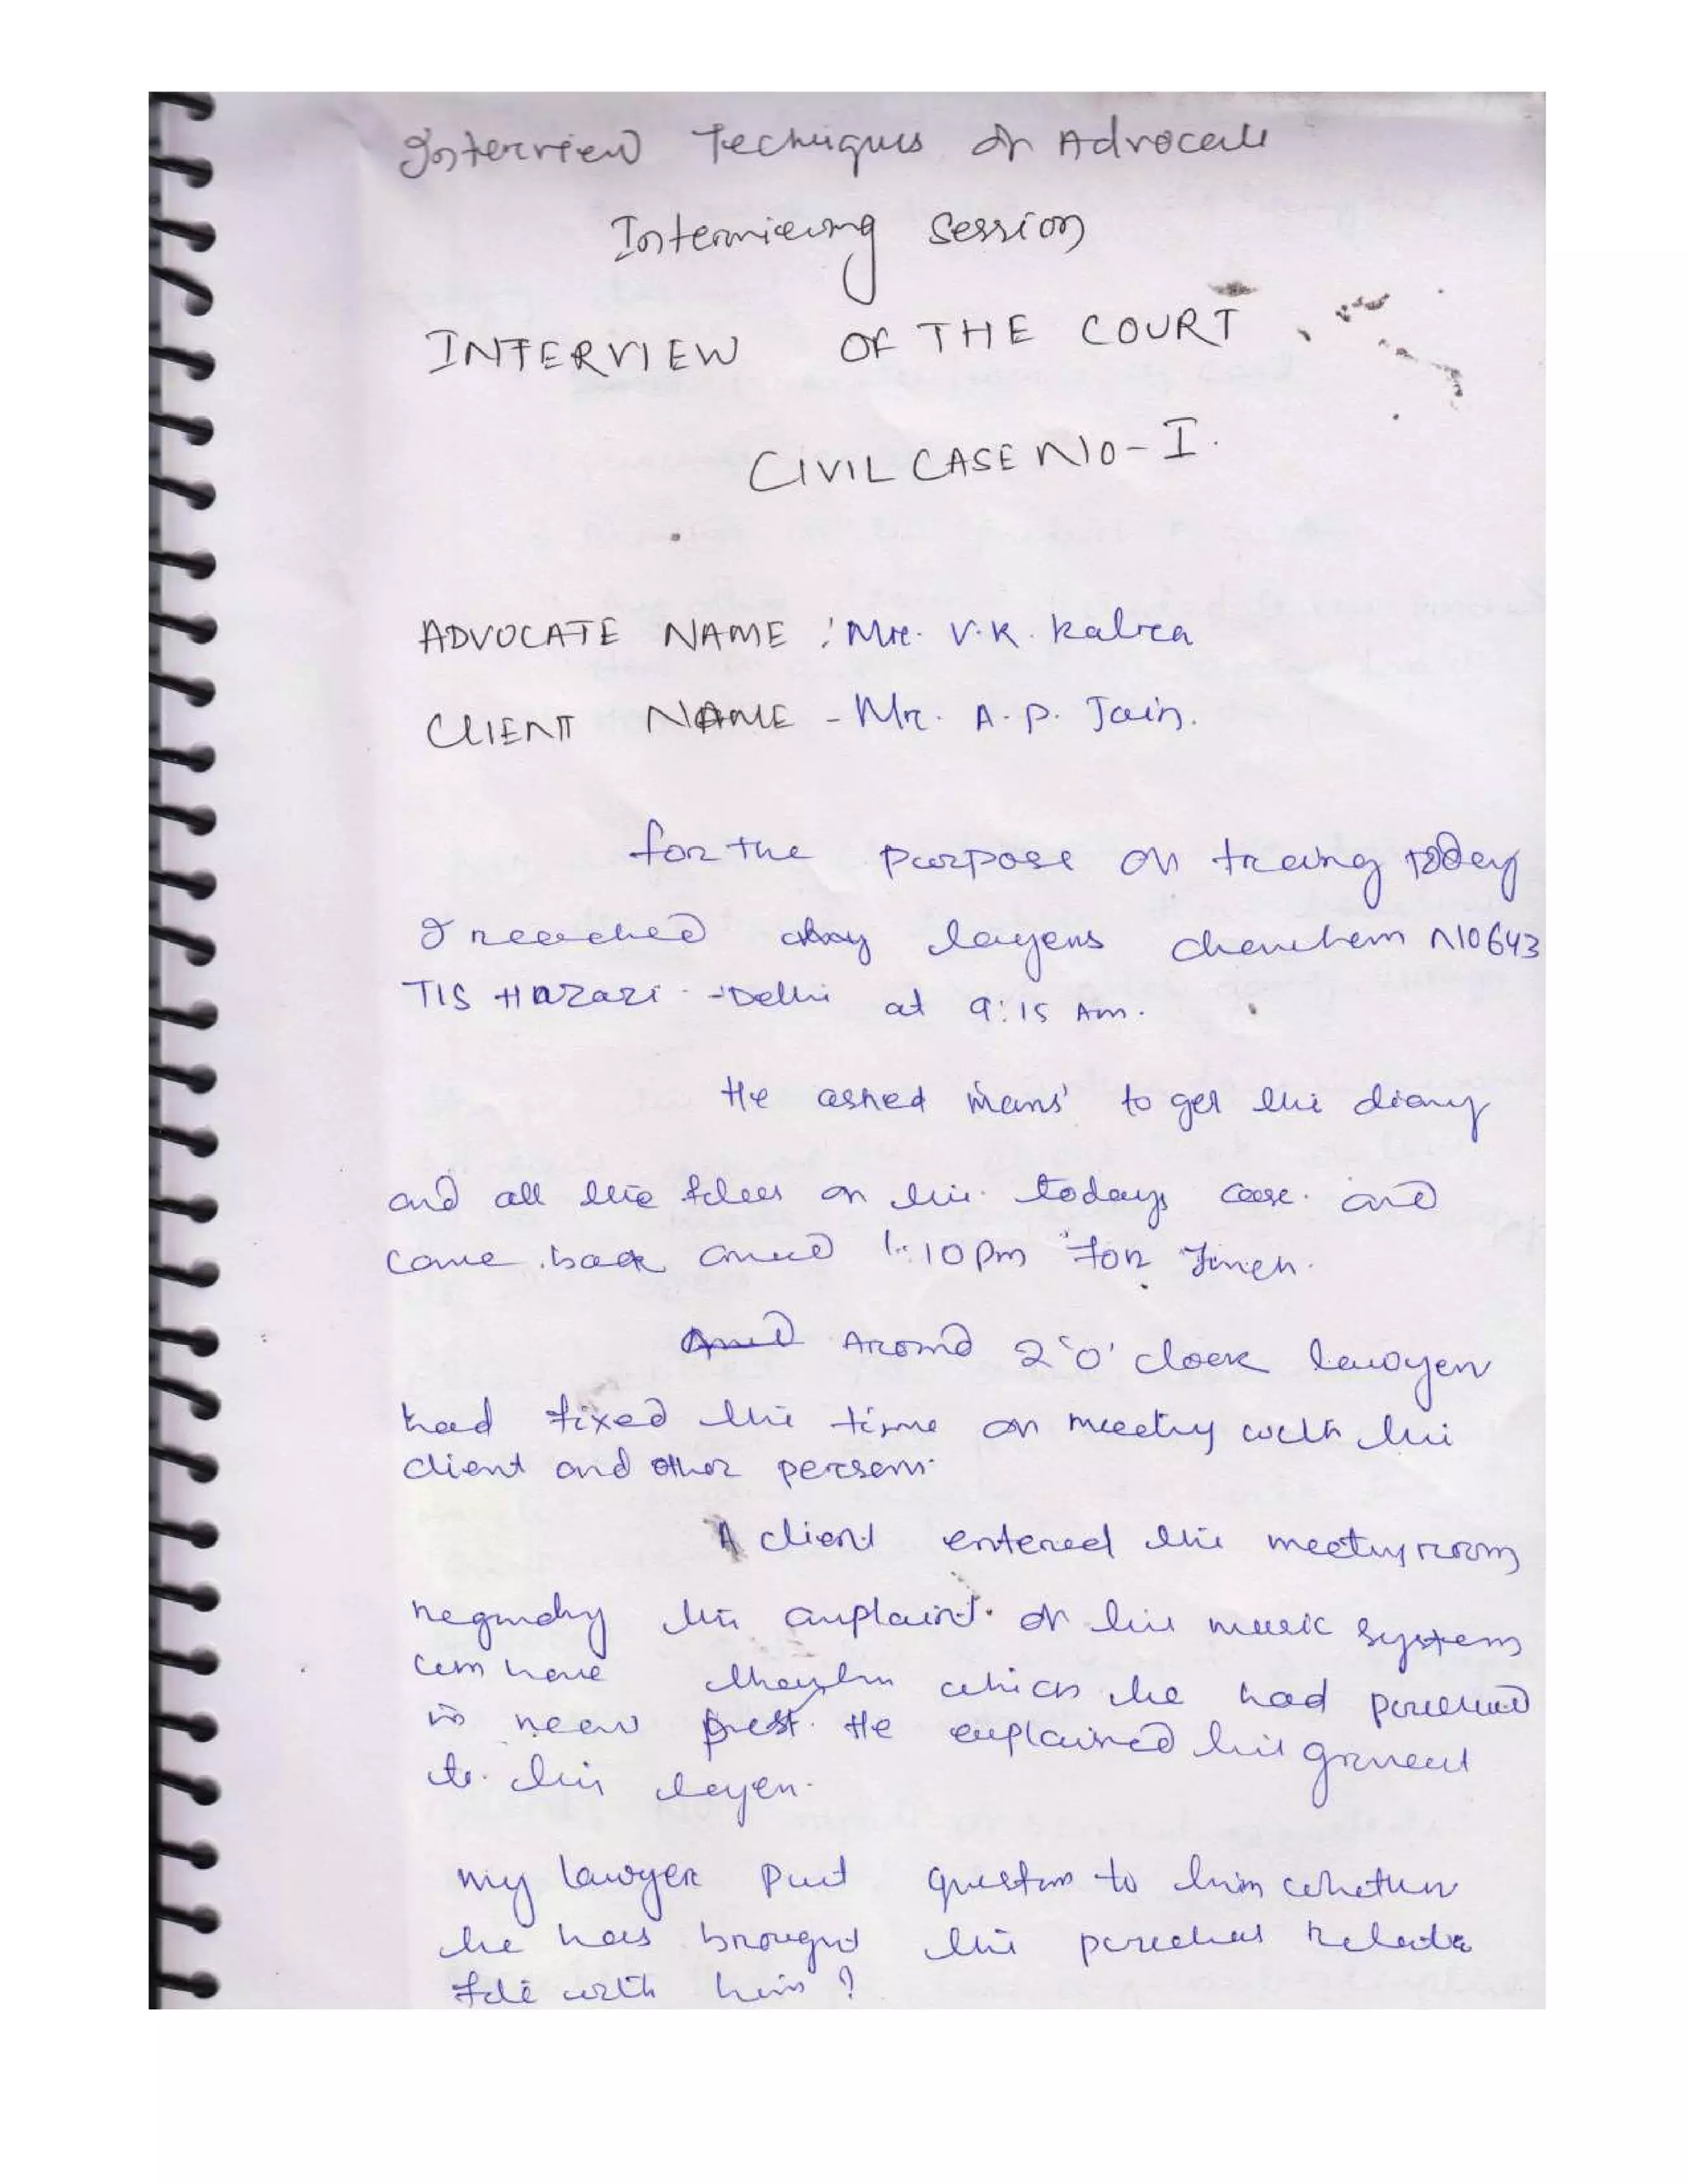 Interview Techniques of Advocate
Interviewing Session
INTERVIEW OF THE COURT
CIVIL CASE NO - I.
ADVOCATE NAME : Mr. V.K. Kalra
CLIENT NAME - Mr. A.P. Jain.
for the purpose of today
I reached my layers chember N10643
TIS Hazari - Delhi at 9:15 Am.
He asked to get the diary
and all the files of the todays case. and
come back 1:10 Pm for
Around 2 'O' clock lawyer
had fixed the time of meeting with the
client and other person.
A client entered the meeting room
the of his music system
which he had
in near He explained his
to his layer.
my lawyer put question to him whether
he has brought the relate
file with him ?